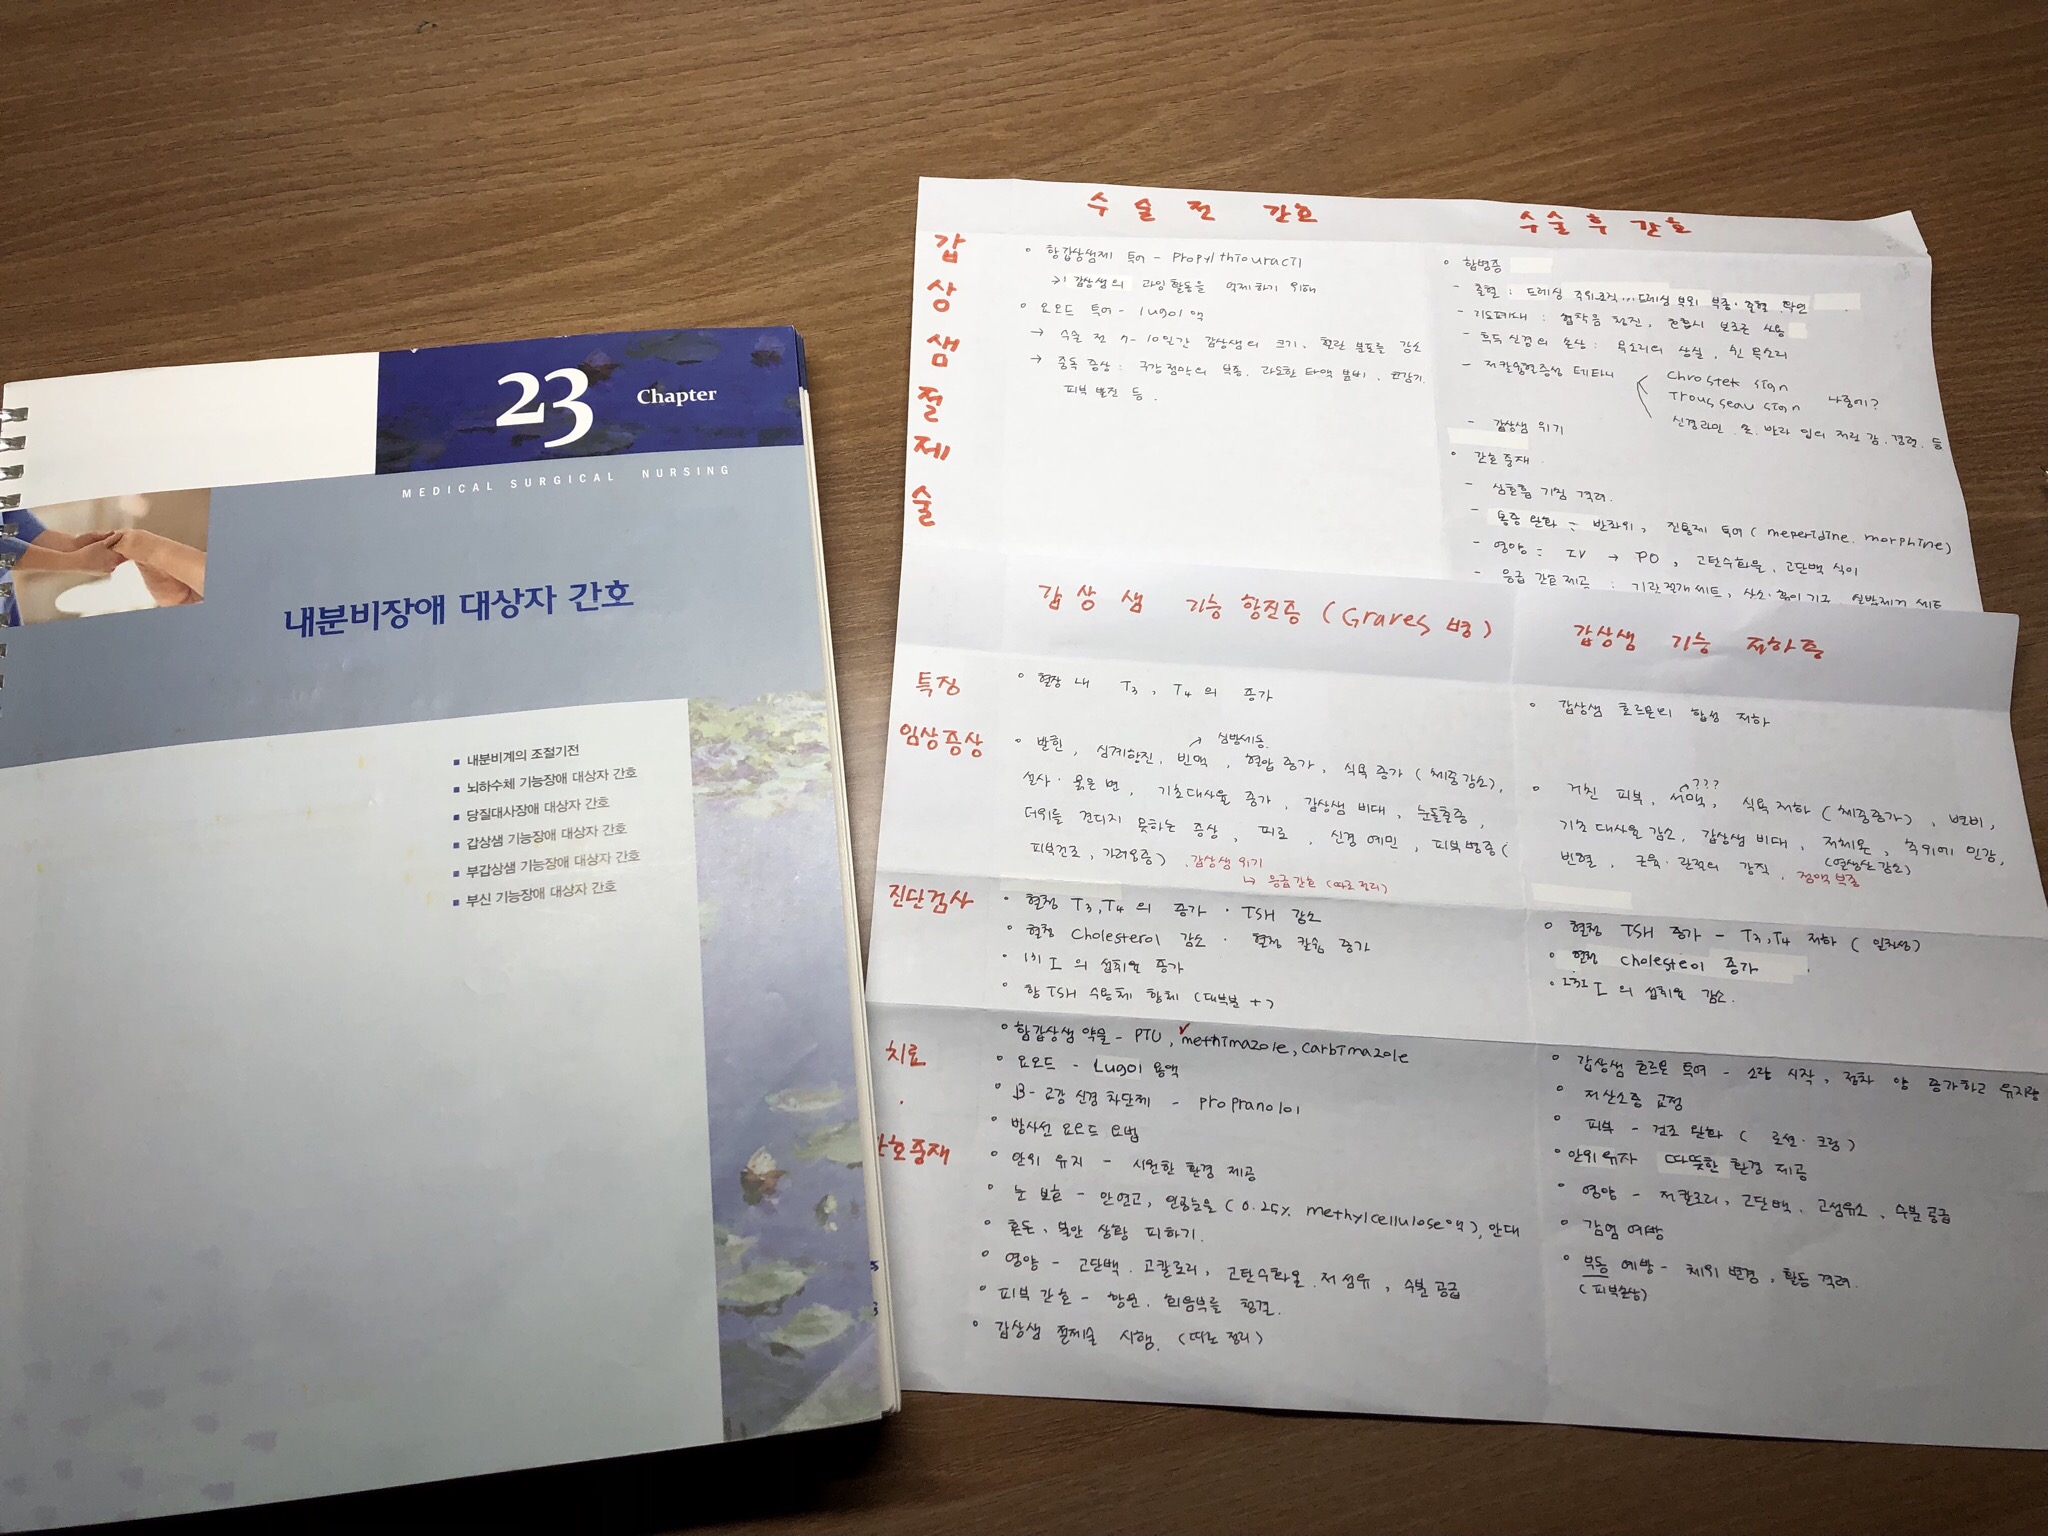 23 Chapter
MEDICAL SURGICAL NURSING
내분비장애 대상자 간호
내분비계의 조절기전
뇌하수체 기능장애 대상자 간호
당질대사장애 대상자 간호
갑상샘 기능장애 대상자 간호
부갑상샘 기능장애 대상자 간호
부신 기능장애 대상자 간호
갑상샘절제술
수술 전 간호
항갑상샘제 투여 - Propylthiouracil
갑상샘의 과잉활동을 억제하기 위해
요오드 투여 - lugol 액
→ 수술 전 7-10일간 갑상샘의 크기, 혈관 분포를 감소
→ 중독 증상 : 구강점막의 부종, 과도한 타액 분비, 코감기,
피부 발진 등.
수술 후 간호
합병증
- 출혈 : 드레싱 주위조직...드레싱 부위 부종·출혈 확인
- 기도폐쇄 : 협착음 청진, 호흡시 보조근 사용
- 후두 신경의 손상 : 목소리의 상실, 쉰 목소리
- 저칼슘혈증성 테타니
Chvostek sign
Trousseau sign 나중에?
손·발과 입의 저린 감·경련 등
- 갑상샘 위기
간호중재
- 심호흡 기침 격려.
- 통증 완화 : 반좌위, 진통제 투여 (meperidine. morphine)
- 영양 : IV → PO, 고탄수화물, 고단백 식이
- 응급 간호제공 : 기관절개세트, 산소·흡인기구, 실밥제거 세트
갑상샘 기능 항진증 (Graves 병)
갑상샘 기능 저하증
특징
혈장 내 T3, T4 의 증가
갑상샘 호르몬의 합성 저하
임상증상
→ 심방세동.
발한, 심계항진, 빈맥, 혈압 증가, 식욕 증가 (체중감소),
설사·묽은 변, 기초대사율 증가, 갑상샘 비대, 눈돌출증,
더위를 견디지 못하는 증상, 피로, 신경 예민, 피부병증(
피부건조, 가려움증) 갑상샘 위기
↳ 응급간호 (따로 정리)
???
거친 피부, 서맥, 식욕저하 (체중증가), 변비,
기초 대사율 감소, 갑상샘 비대, 저체온, 추위에 민감,
(열생산 감소)
빈혈, 근육·관절의 강직, 점액부종
진단검사
혈청 T3, T4 의 증가 · TSH 감소
혈청 Cholesterol 감소 · 혈청 칼슘 증가
131 I 의 섭취율 증가
항 TSH 수용체 항체 (대부분 +)
혈청 TSH 증가 - T3, T4 저하 (일차성)
혈청 cholesterol 증가
131 I 의 섭취율 감소.
치료
·
간호중재
항갑상샘 약물 - PTU, methimazole, carbimazole
요오드 - Lugol 용액
β-교감 신경 차단제 - propranolol
방사선 요오드 요법
안위 유지 - 시원한 환경 제공
눈 보호 - 안연고, 인공눈물 (0.25% methylcellulose액), 안대
흥분, 불안 상황 피하기.
영양 - 고단백, 고칼로리, 고탄수화물, 저섬유, 수분 공급
피부 간호 - 항문, 회음부를 청결.
갑상샘 절제술 시행. (따로 정리)
갑상샘 호르몬 투여 - 소량 시작, 점차 양 증가하고 유지량
저산소증 교정
피부 - 건조 완화 (로션·크림)
안위유지 따뜻한 환경 제공
영양 - 저칼로리, 고단백, 고섬유소, 수분공급
감염 예방
부동 예방 - 체위 변경, 활동 격려.
(피부손상)